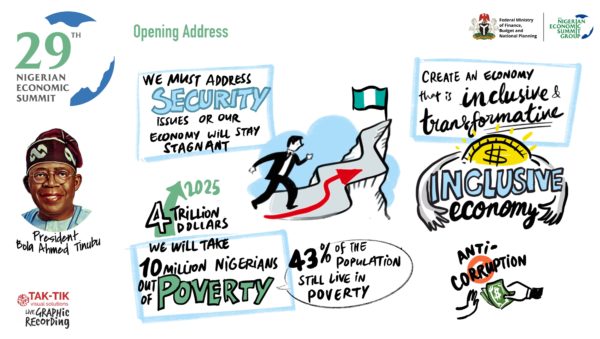 29TH
NIGERIAN
ECONOMIC
SUMMIT
Opening Address
Federal Ministry
of Finance,
Budget and
National Planning
THE
NIGERIAN
ECONOMIC
SUMMIT
GROUP
WE MUST ADDRESS
SECURITY
ISSUES OR OUR
ECONOMY WILL STAY
STAGNANT
CREATE AN ECONOMY
that is inclusive &
transformative
$
INCLUSIVE
economy
2025
4 TRILLION
DOLLARS
President
Bola Ahmed Tinubu
WE WILL TAKE
10 MILLION NIGERIANS
OUT
OF POVERTY
43% OF THE
POPULATION
STILL LIVE IN
POVERTY
ANTI-
CORRUPTION
$
TAK-TIK
visual solutions
LIVE GRAPHIC
RECORDING